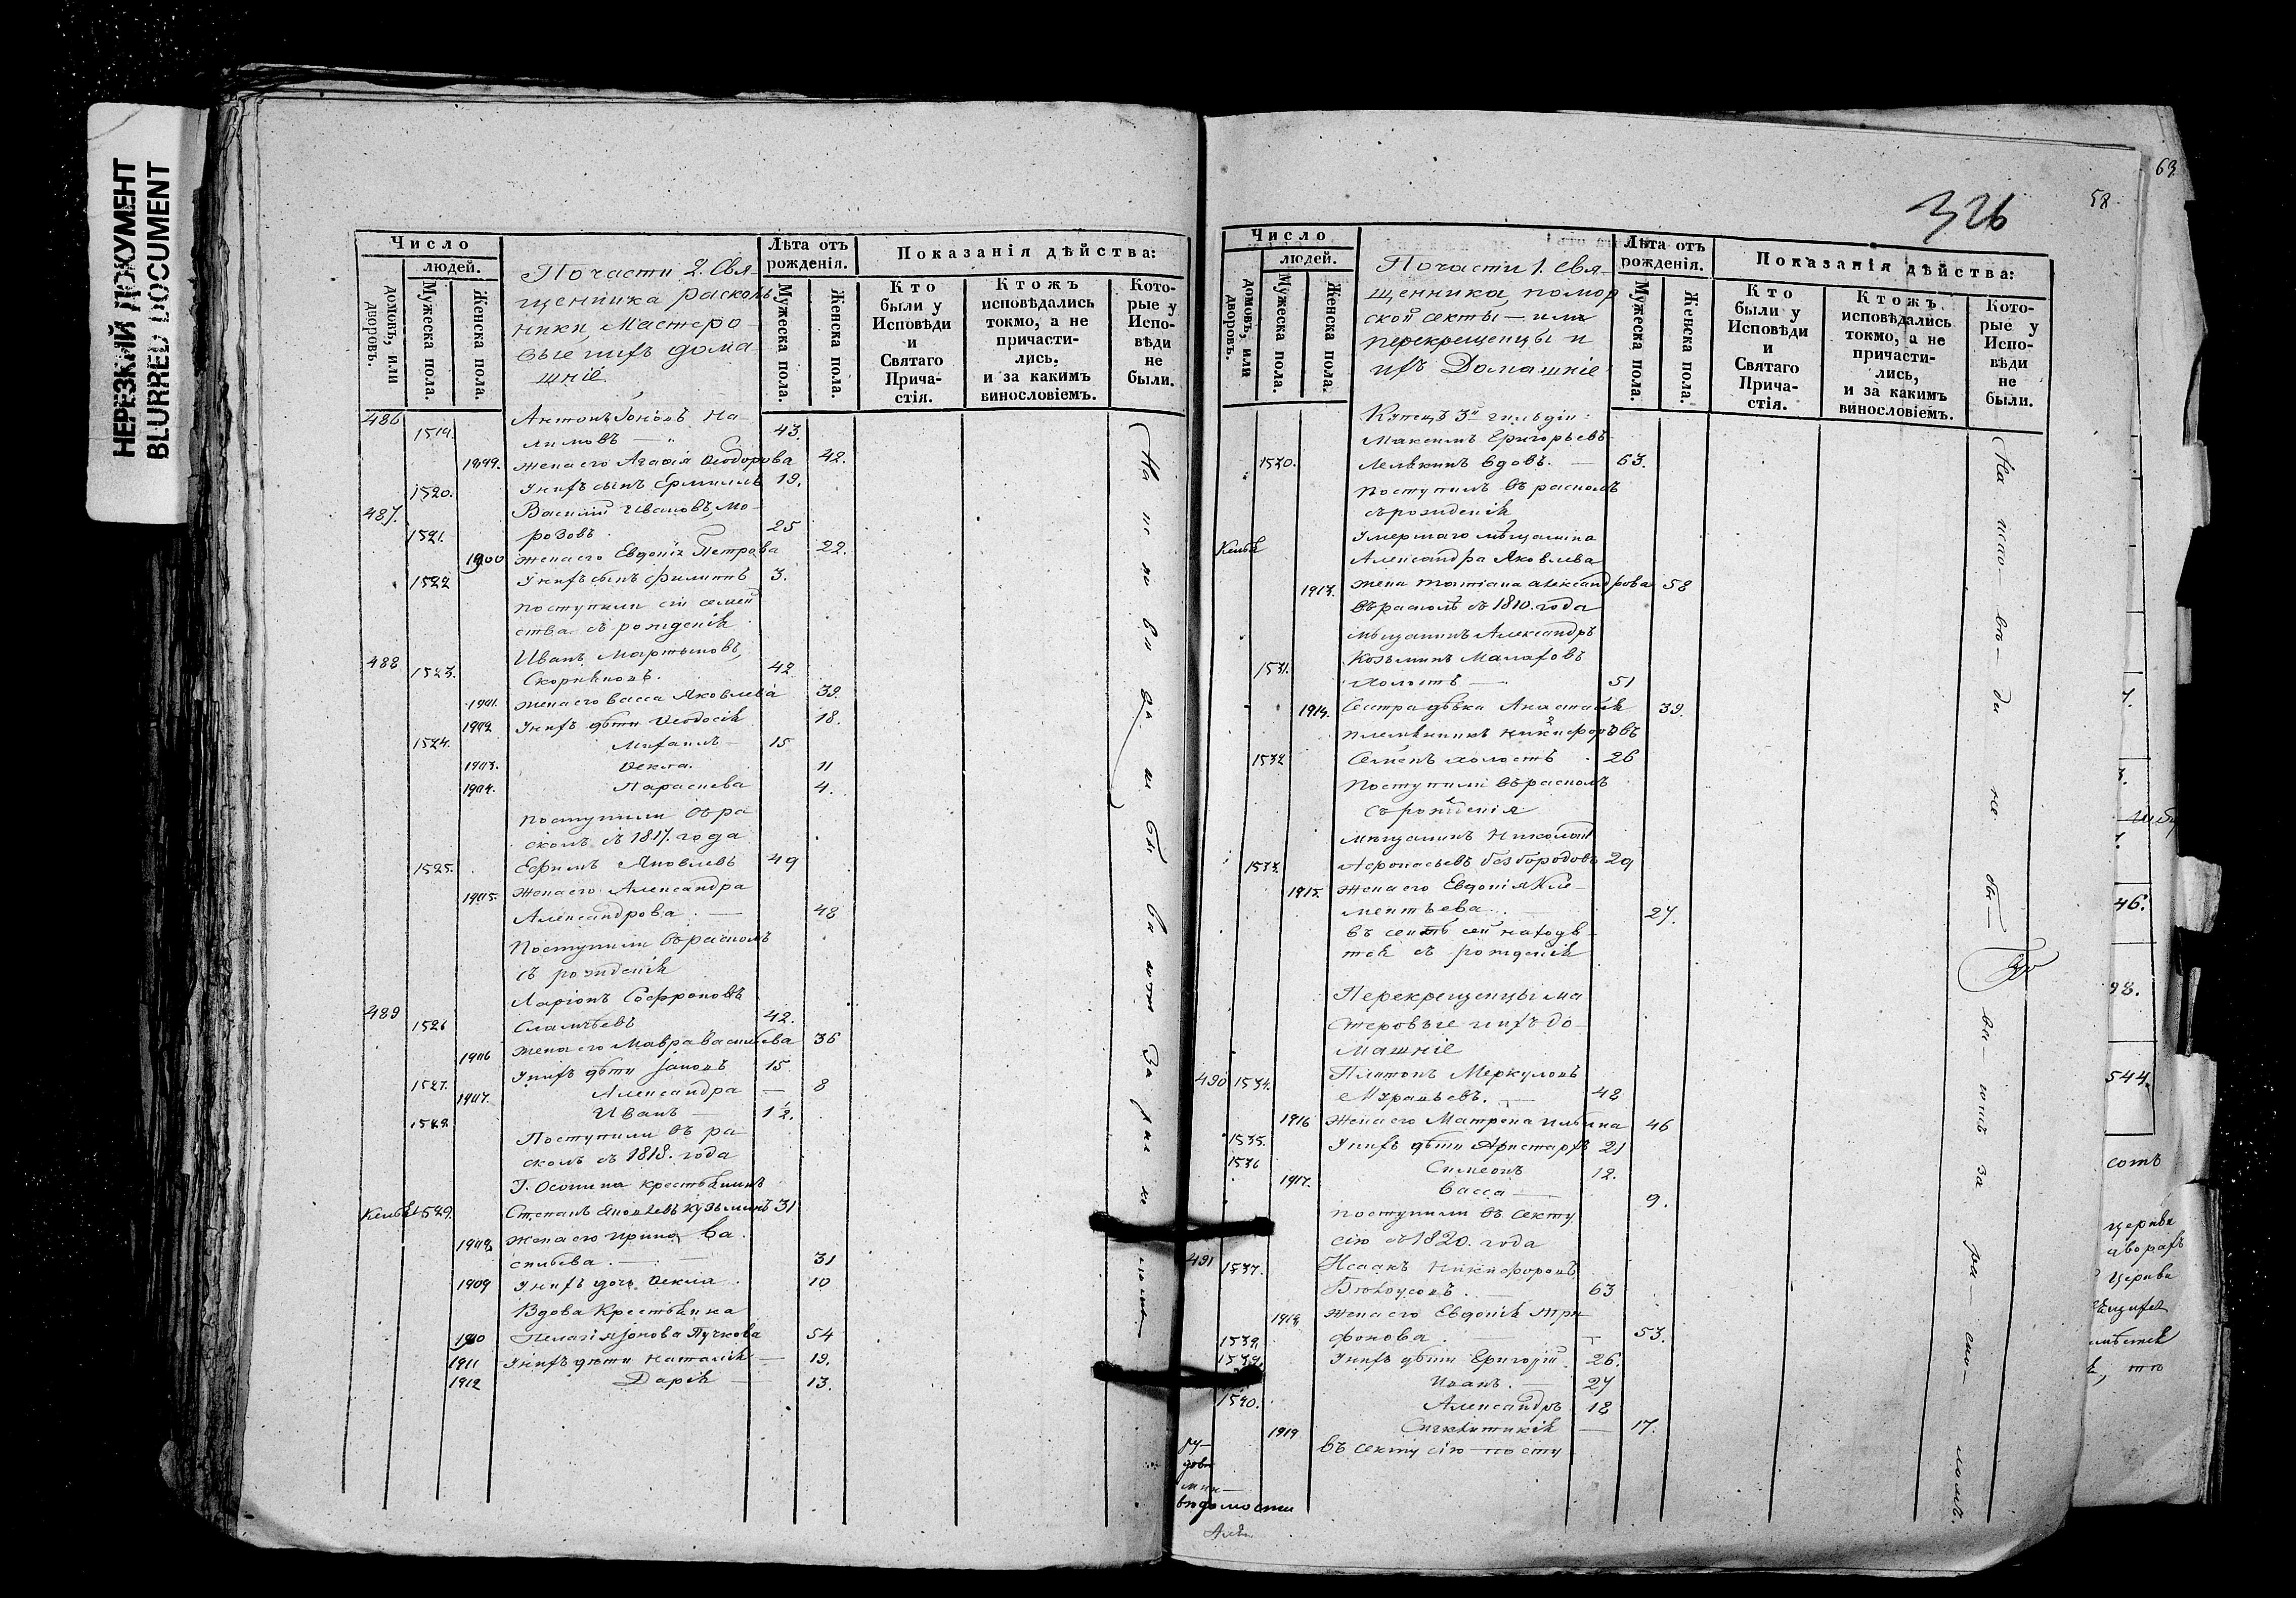 НЕРЕЗКИЙ ДОКУМЕНТ
BLURRED DOCUMENT
Число
людей.
домовъ, или дворовъ.
Мужеска пола.
Женска пола.
По части 2. Свя-
щенника расколь
ники Мастеро-
вые ихъ дома
шніе
Лѣта отъ рожденія.
Мужеска пола.
Женска пола.
Показанія дѣйства:
Кто были у Исповѣди и Святаго Прича-стія.
Ктожъ исповѣдались токмо, а не причасти-лись, и за какимъ винословіемъ.
Кото-рые у Испо-вѣди не были.
486
1519. 43.
1899. жена его Агафія Ѳеодорова 42.
1520. У нихъ сынъ Ермилъ 19.
487. Василій Ивановъ, Мо-
1521. розовъ 25
1900 жена его Евдокія Петрова 22.
1522 У нихъ сынъ Филиппъ 3.
поступили сіи семей
ства съ рожденія
488 Иванъ Мартыновъ,
1523. 42
1901. жена его Васса Яковлева 39.
1902 У нихъ дѣти Ѳеодосія 18.
1524. Михаилъ 15
1903. Ѳекла. 11
1904. Параскева 4.
поступили въ ра
сколъ съ 1817. года
1525. Ефимъ Яковлевъ 49
1905. жена его Александра
Александрова. 48
Поступили въ расколъ
съ рожденія
Ларіонъ Софроновъ
489 1526 42.
1906 жена его Мавра Васильева 36
1527. У нихъ дѣти 15
1907. Александра 8
1528. Иванъ 1 1/2.
Поступили въ ра
сколъ съ 1818. года
Г. Осокина крестьянинъ
1529. Степанъ Яковлевъ Кузьминъ 31
1908 жена его Ирина Ва
сильева. 31
1909 У нихъ дочь Ѳекла 10
Вдова Крестьянка
1910 Пелагія Іонова Пучкова 54
1911 У нихъ дѣти Наталія 19.
1912 Дарія 13.
326
58
63
Число
людей.
домовъ, или дворовъ.
Мужеска пола.
Женска пола.
По части 1. Свя-
щенника, помор
ской секты – или
перекрещенцы и
ихъ Домашніе
Лѣта отъ рожденія.
Мужеска пола.
Женска пола.
Показанія дѣйства:
Кто были у Исповѣди и Святаго Прича-стія.
Ктожъ исповѣдались токмо, а не причасти-лись, и за какимъ винословіемъ.
Кото-рые у Испо-вѣди не были.
Купецъ 3й гильдіи:
Максимъ Григорьевъ
1530. вдовъ. 63.
поступилъ въ расколъ
съ рожденія
Умершаго мѣщанина
Александра Яковлева
1913. жена Татіана Александрова 58
въ расколъ съ 1810. года
мѣщанинъ Александръ
1531. Козьминъ Малаховъ
холостъ 51
1914. Сестра дѣвка Анастасія 39.
племянникъ Никифоровъ
1532 Семенъ холостъ 26
Поступили въ расколъ
съ рожденія
мѣщанинъ Николай
1533. Афонасьевъ Безбородовъ 29
1915. жена его Евдокія Кле-
ментьева 27.
въ сектѣ сей находят
тся съ рожденія
Перекрещенцы ма
стеровые и ихъ до-
машніе
490 1534. Платонъ Меркуловъ
Муравьевъ. 48
1916 жена его Матрена Ильина 46
1535. У нихъ дѣти Аристархъ 21
1536 Симеонъ 12.
1917. Васса 9.
поступили въ секту
сію съ 1820. года
491 1537. Исаакъ Никифоровъ
Бѣлоусовъ. 63
1918 жена его Евдокія Три
фонова. 53.
1538
1539. У нихъ дѣти Григорій 26.
Иванъ. 24
1540. Александръ 18
1919 Сигклитикія 17.
въ секту сію посту
вѣдомости
46.
98.
544.
сотъ
церкви
дворахъ
Церкви